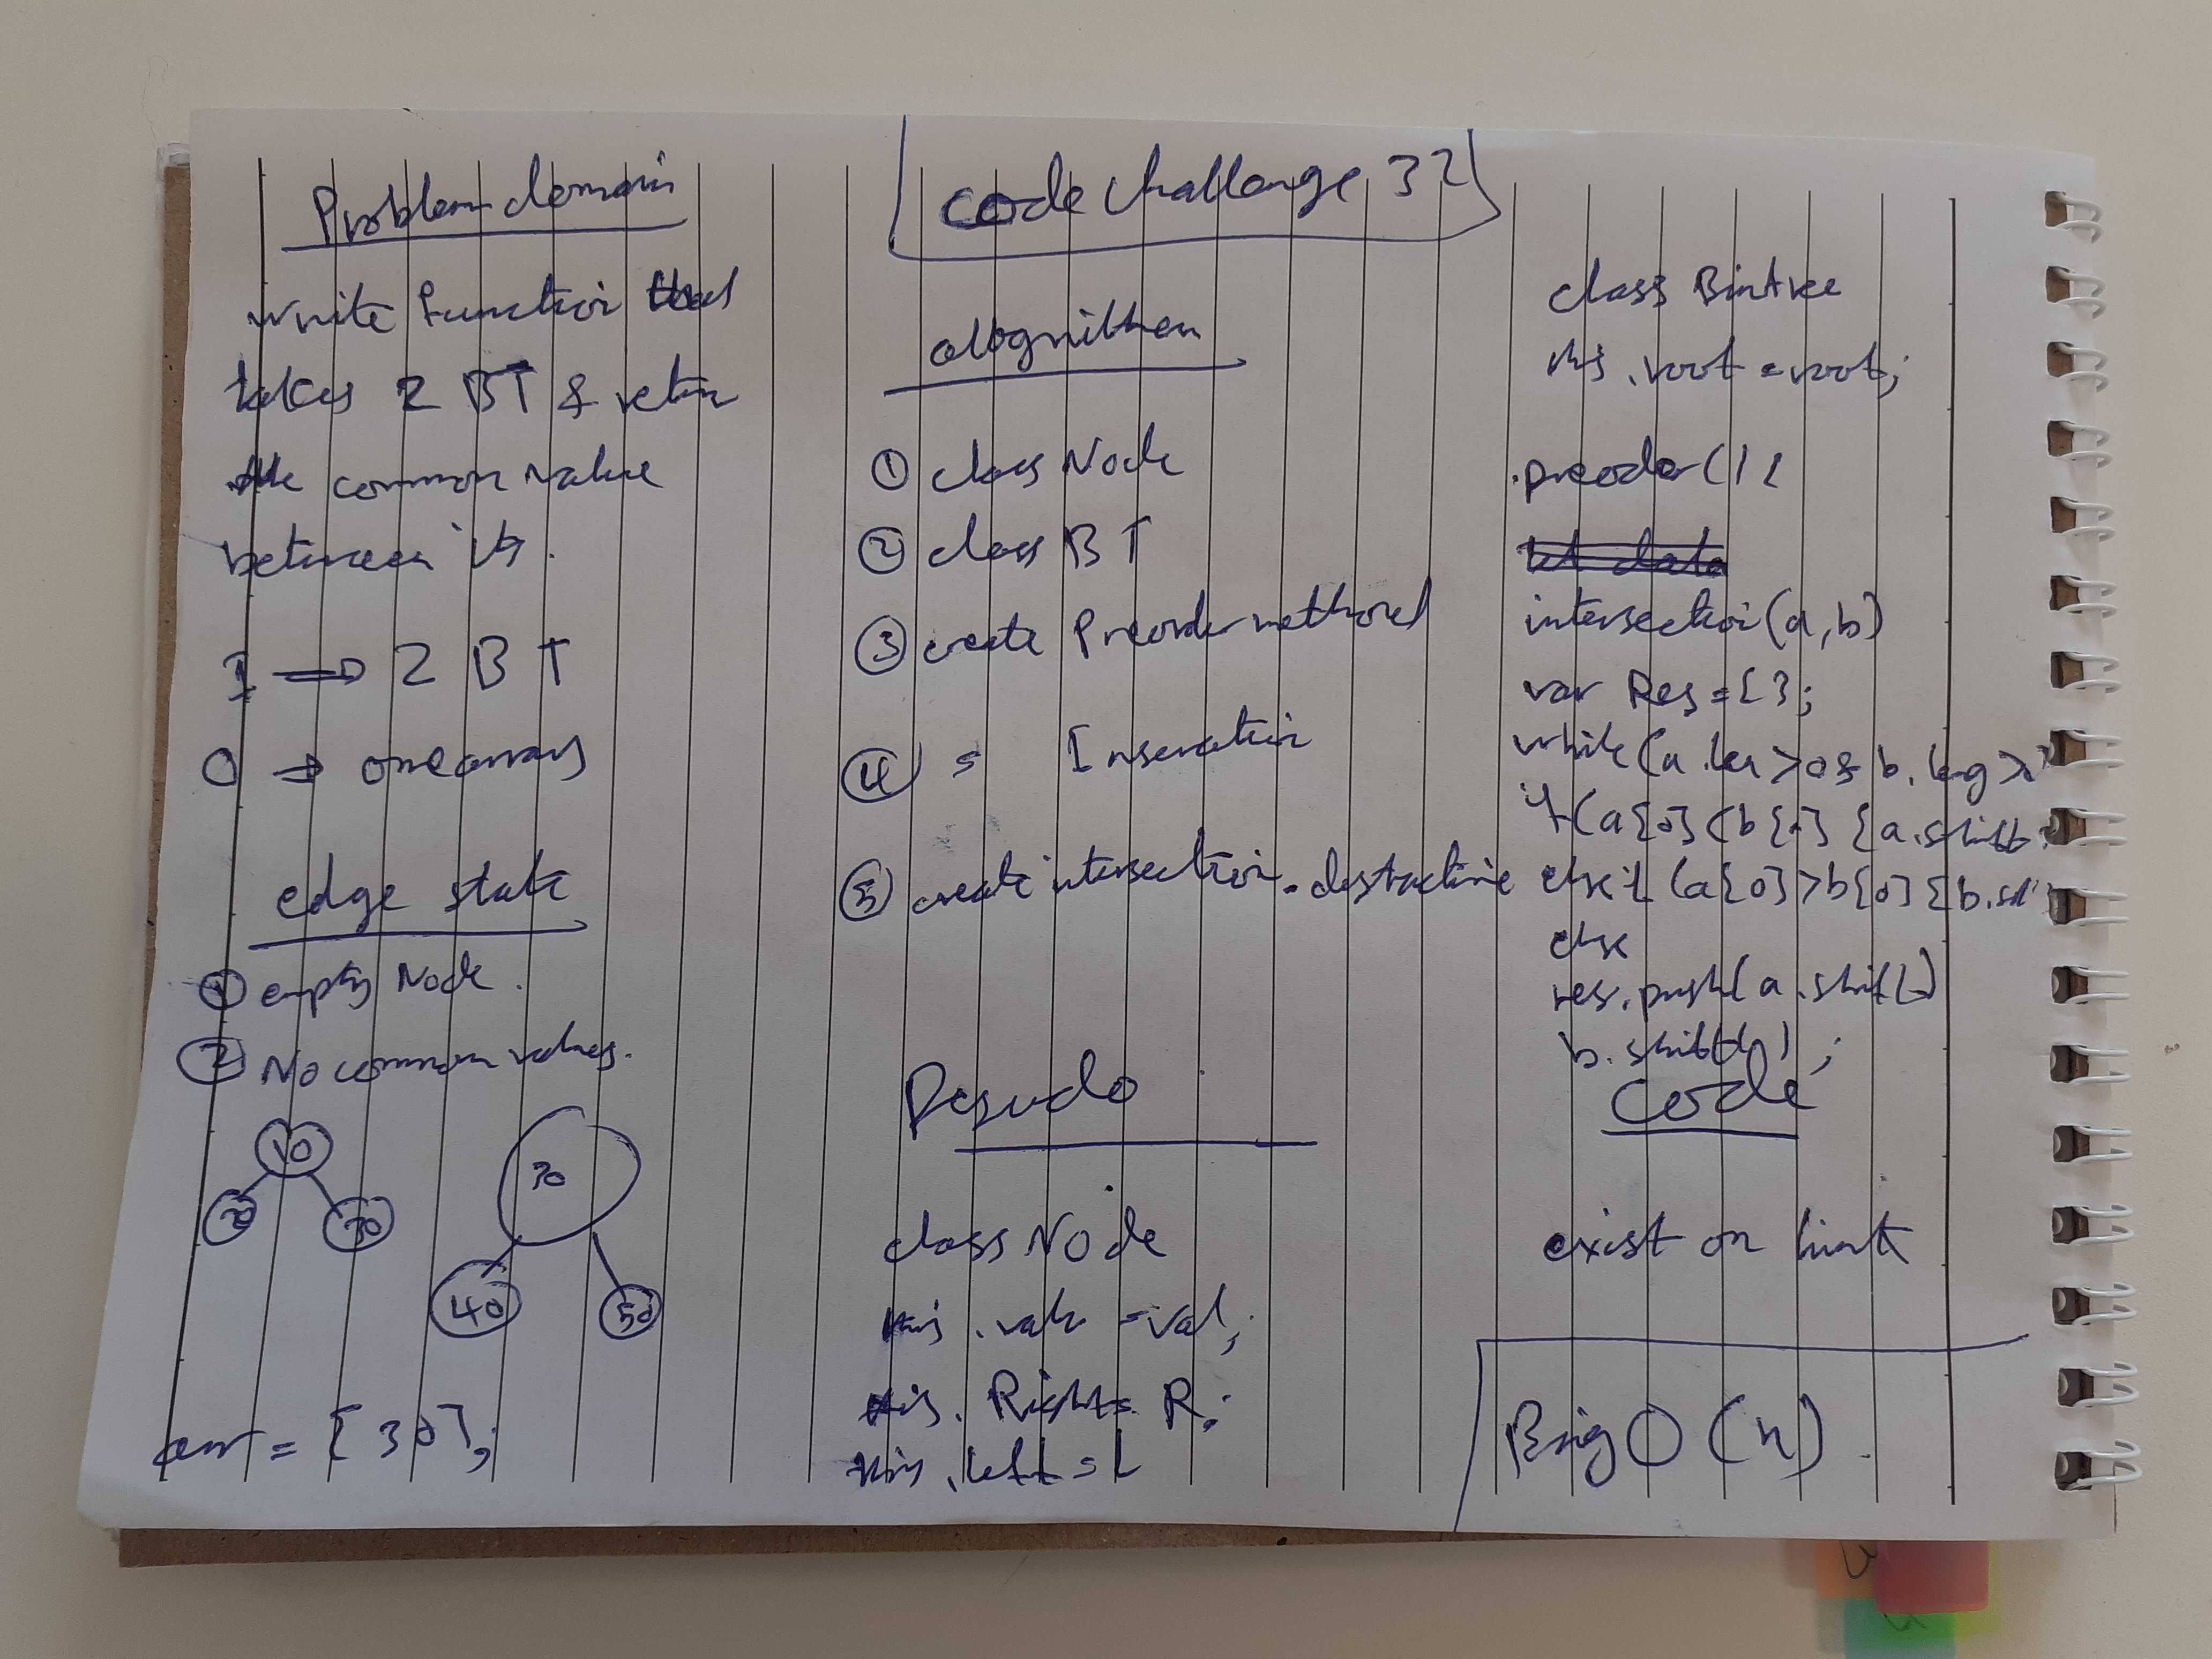 code challenge 32
Problem domain
write function that
takes 2 BT & return
the common value
between its.
I ⇒ 2 BT
O ⇒ one array
edge state
① empty Node.
② No common values.
10
20 30
30
40 50
arr = [30];
alogrithem
① class Node
② class BT
③ create Preorder method
④ =
⑤ create intersection-destructive
Psaudo
class Node
this.vale = val;
this.Right = R;
this.left = L
class Bintree
this.root = root;
.preoder(){
let data
intersection(a,b)
var Res = [];
while (a.len >0 & b.leng >
if (a[0] < b[0] {a.shift
else if (a[0] > b[0] {b.sh
else
res.push(a.shift()
b.shift();
code
exist on
Big O(n).